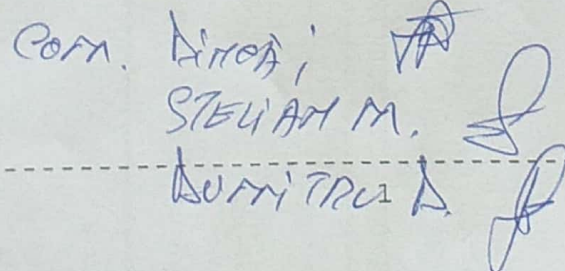 Com. Dincă;
STELIAN M.
DUMITRU D.